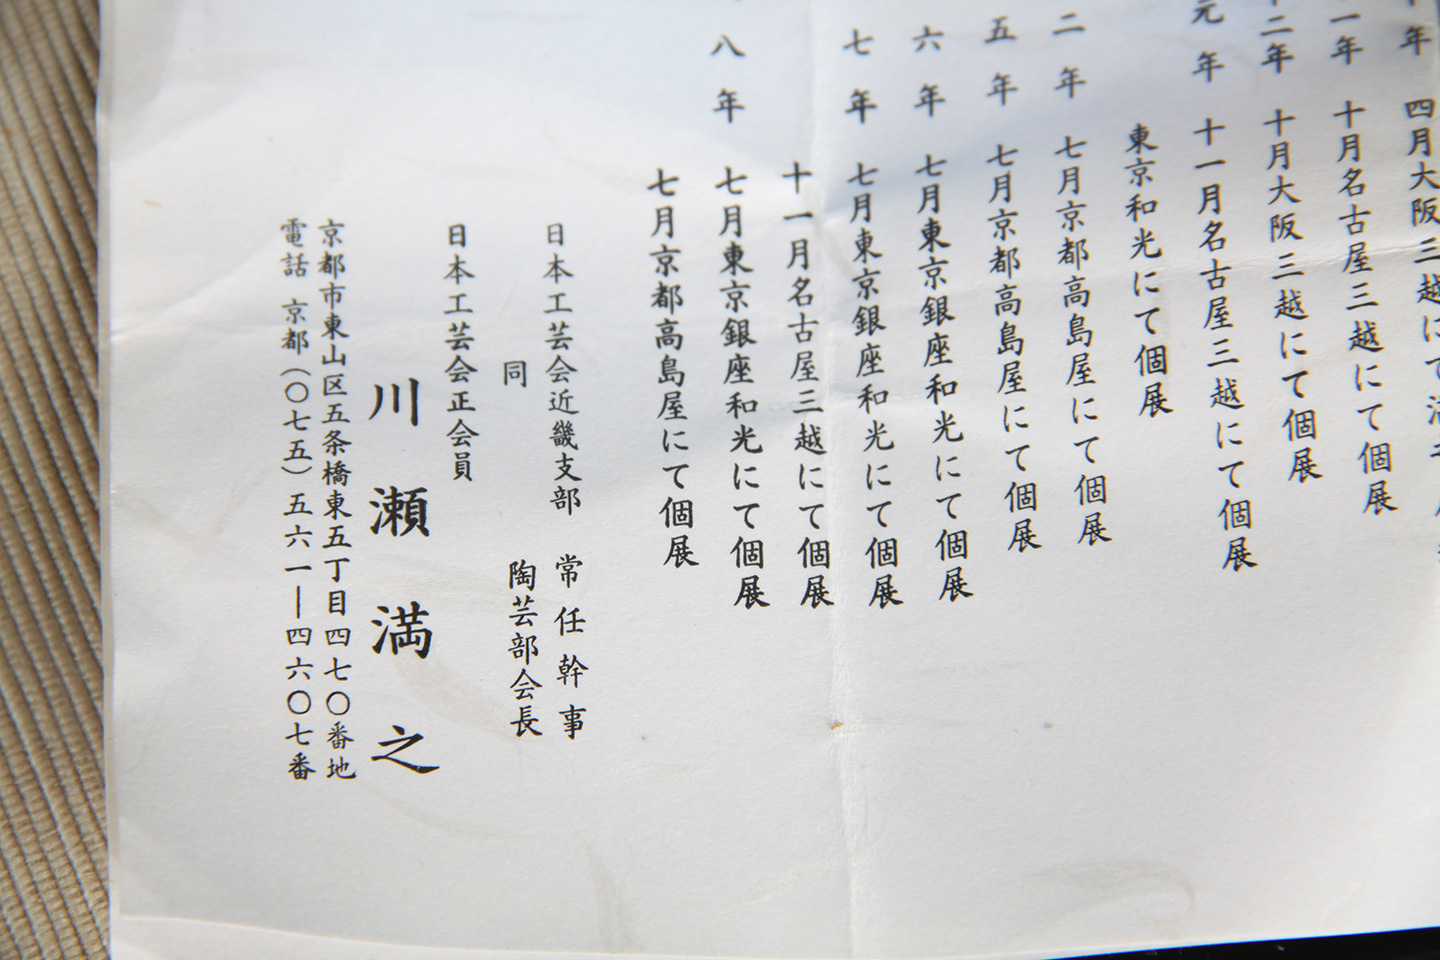 年 四月大阪三越にて
一年 十月名古屋三越にて個展
十二年 十月大阪三越にて個展
元年 十一月名古屋三越にて個展
東京和光にて個展
二年 七月京都高島屋にて個展
五年 七月京都高島屋にて個展
六年 七月東京銀座和光にて個展
七年 七月東京銀座和光にて個展
十一月名古屋三越にて個展
八年 七月東京銀座和光にて個展
七月京都高島屋にて個展
日本工芸会近畿支部 常任幹事
同 陶芸部会長
日本工芸会正会員
川瀬満之
京都市東山区五条橋東五丁目四七〇番地
電話 京都(〇七五)五六一―四六〇七番